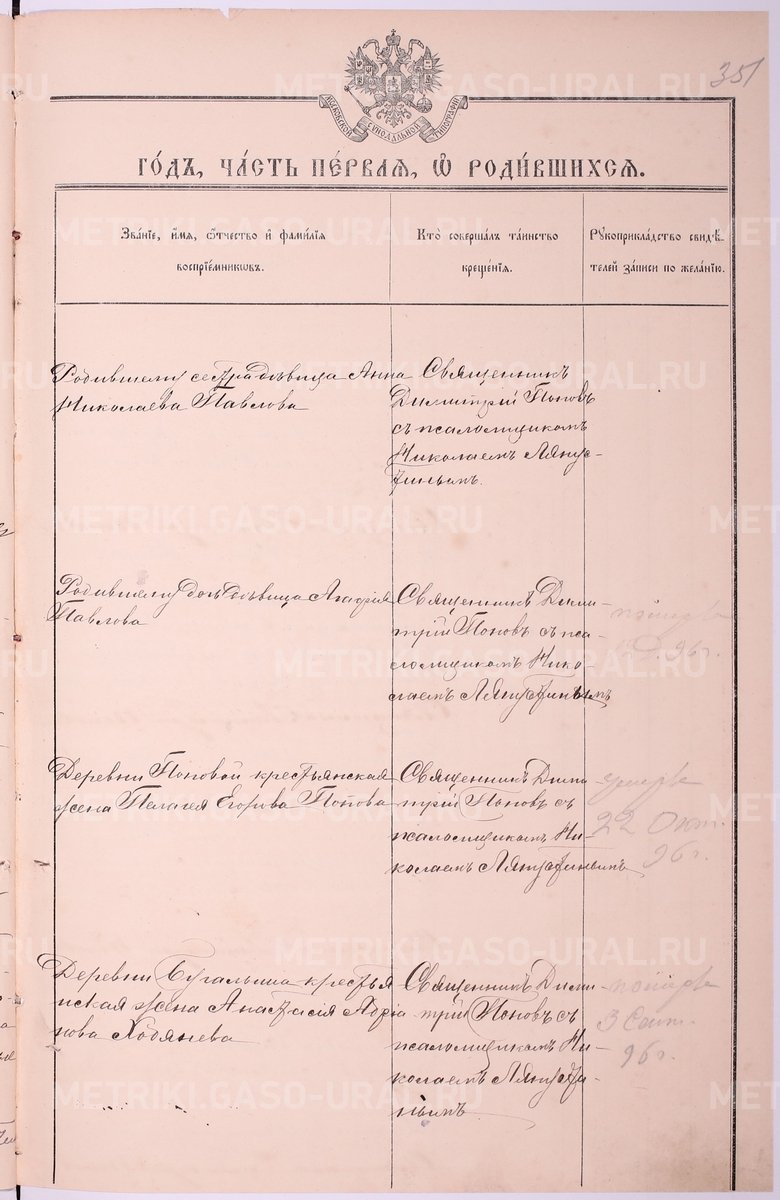 351
МОСКОВСКОЙ СѴНОДАЛЬНОЙ ТИПОГРАФІИ
ГО́ДЪ, ЧА́СТЬ ПЕ́РВАЯ, Ѽ РОДИ́ВШИХСЯ.
Зва́ніе, и҆́мя, ѻ҆́тчество и҆ фами́лія
воспріе́мниковъ.
Кто̀ соверша́лъ та́инство
креще́нія.
Рꙋкоприкла́дство свидѣ́-
телей за́писи по жела́нію.
Родившей сестра дѣвица Анна
Николаева Павлова
Священникъ
Димитрій Поповъ
съ псаломщикомъ
Николаемъ Ляпус-
тинымъ.
Родившей дочь дѣвица Агафія
Павлова
Священникъ Дими-
трій Поповъ съ пса-
ломщикомъ Нико-
лаемъ Ляпустинымъ
96г.
Деревни Поповой крестьянская
жена Пелагея Егорова Попова
Священникъ Дими
трій Поповъ съ
псаломщикомъ Ни-
колаемъ Ляпустинымъ
умерв
22 Окт.
96г.
Деревни Бугалыша крестья
нская жена Анастасія Адріа
нова Ходянева
Священникъ Дими-
трій Поповъ съ
псаломщикомъ Ни-
колаемъ Ляпусти-
нымъ
3 Сент.
96г.
METRIKI.GASO-URAL.RU